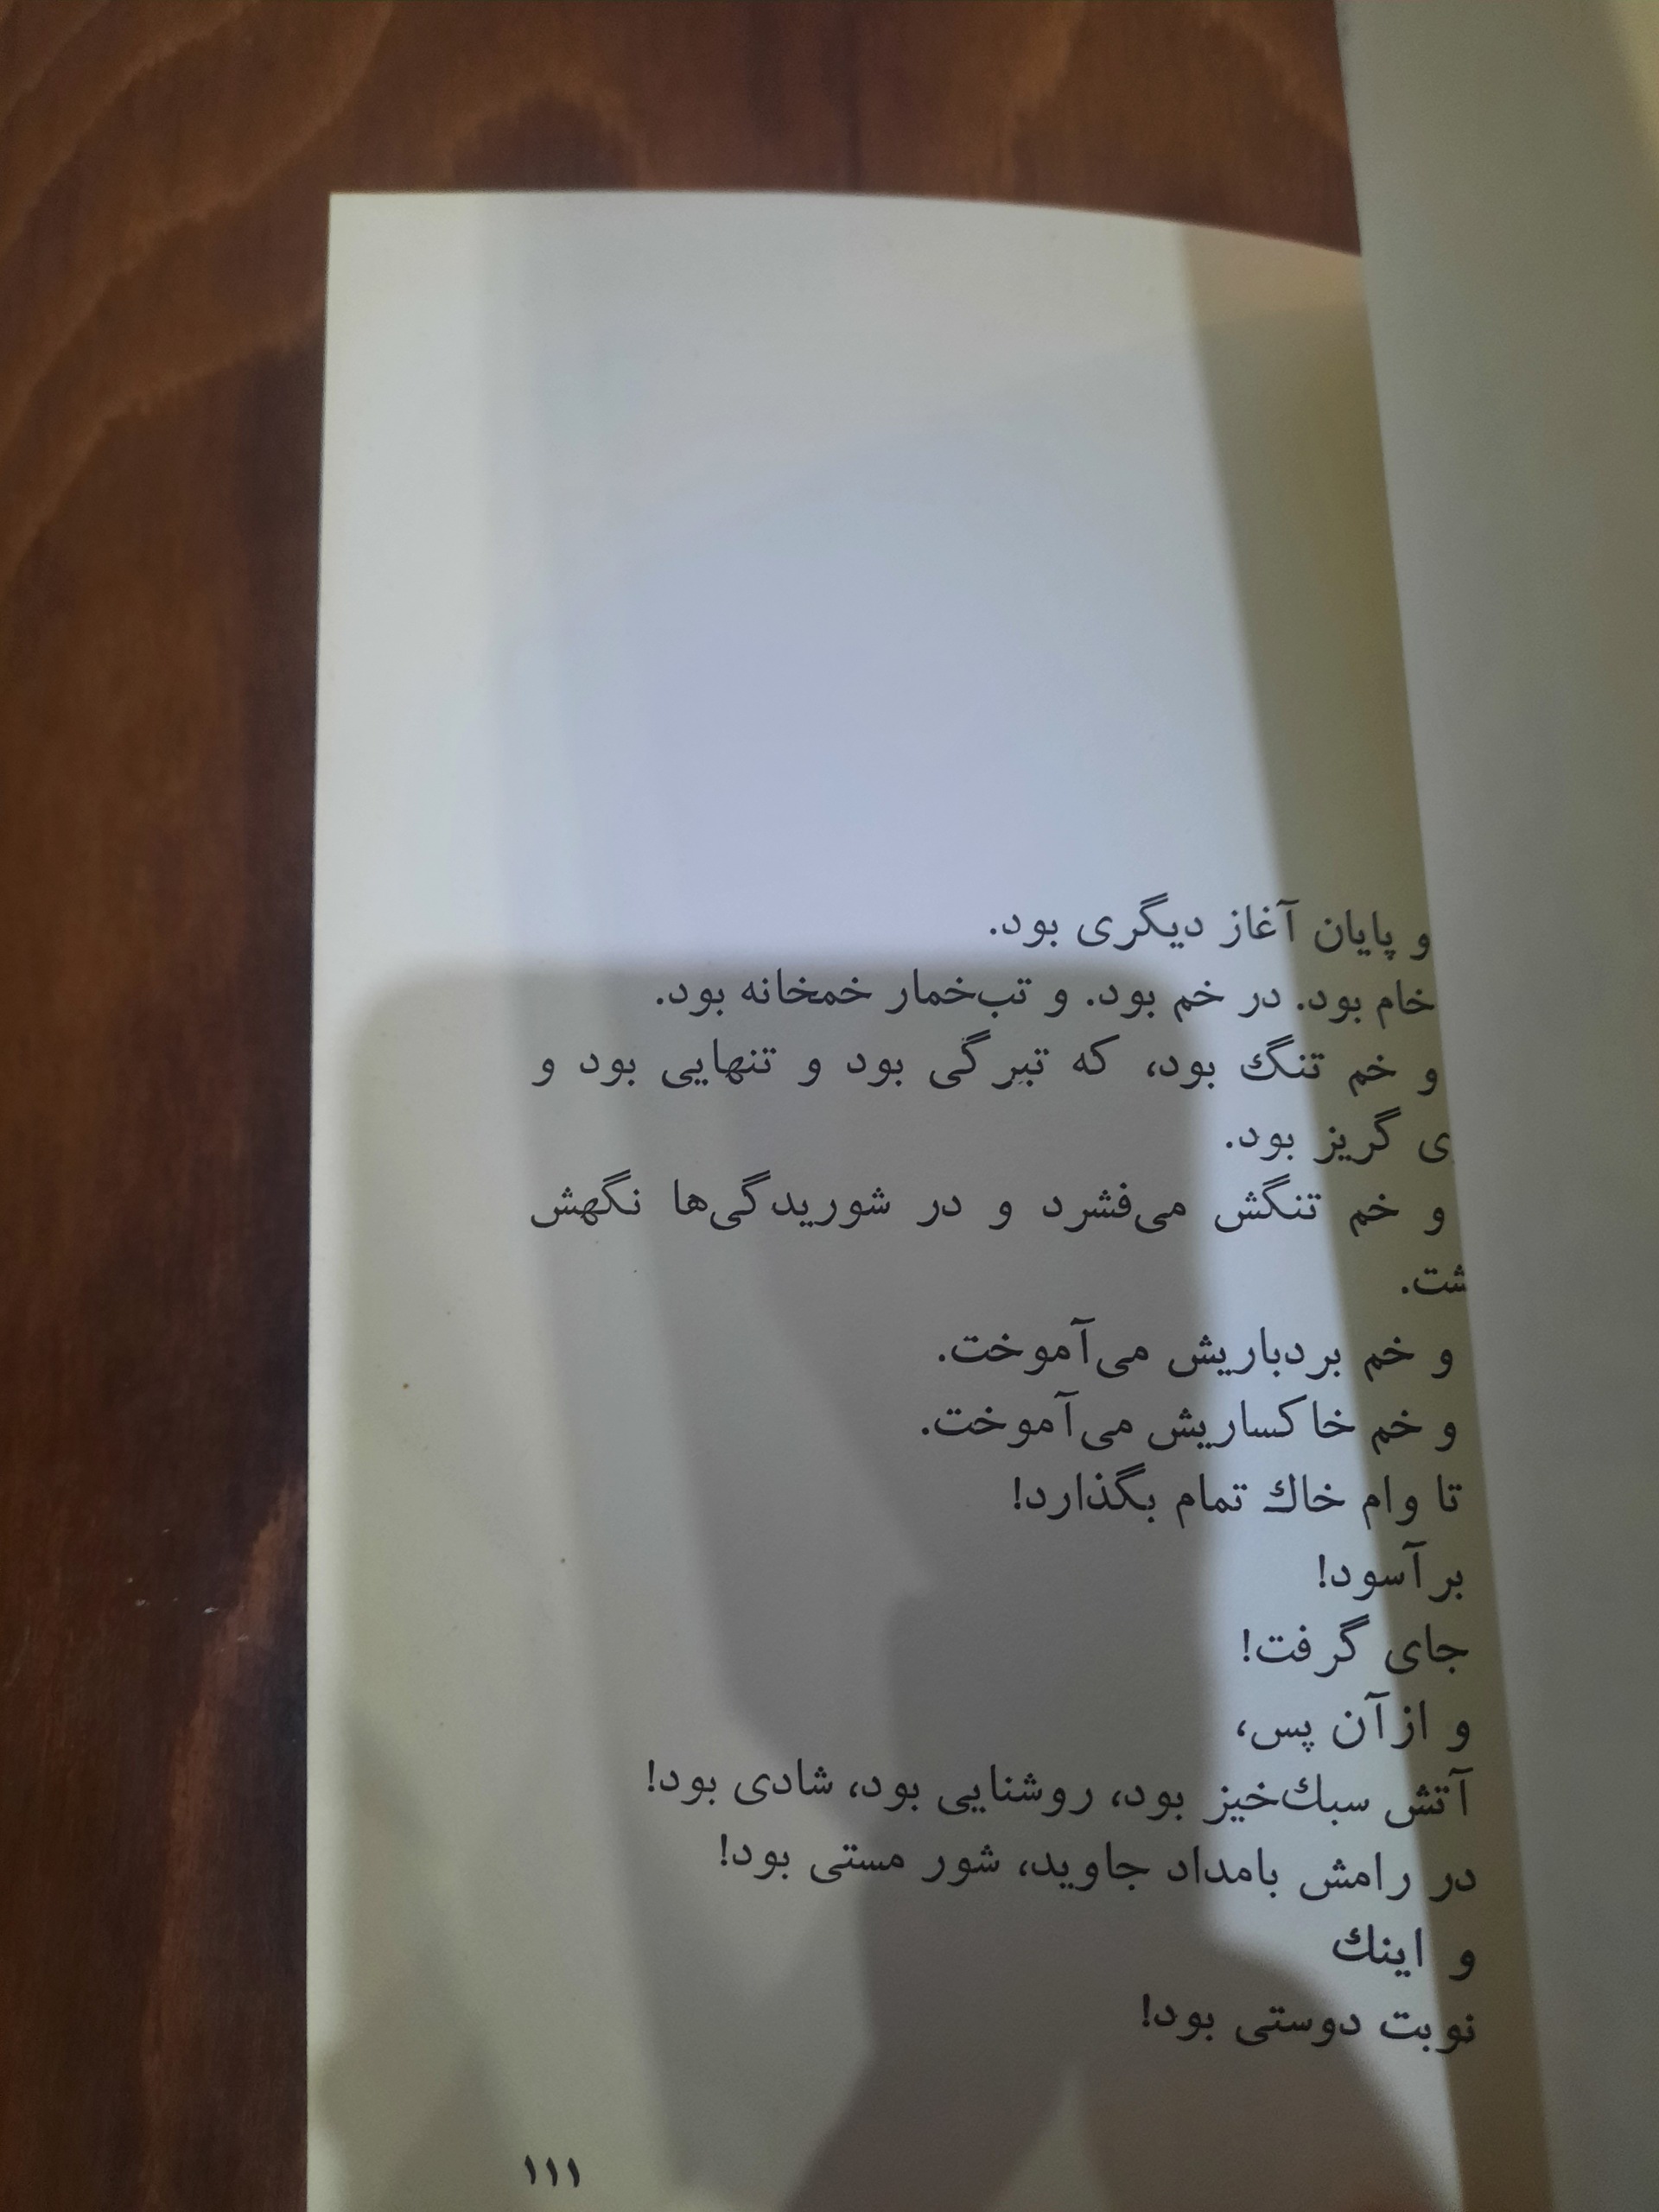 و پایان آغاز دیگری بود.
خام بود. در خم بود. و تب‌خمار خمخانه بود.
و خم تنگ بود، که تیرگی بود و تنهایی بود و
ی گریز بود.
و خم تنگش می‌فشرد و در شوریدگی‌ها نگهش
شت.
و خم بردباریش می‌آموخت.
و خم خاکساریش می‌آموخت.
تا وام خاك تمام بگذارد!
برآسود!
جای گرفت!
و ازآن پس،
آتش سبك‌خیز بود، روشنایی بود، شادی بود!
در رامش بامداد جاوید، شور مستی بود!
و اینك
نوبت دوستی بود!
۱۱۱